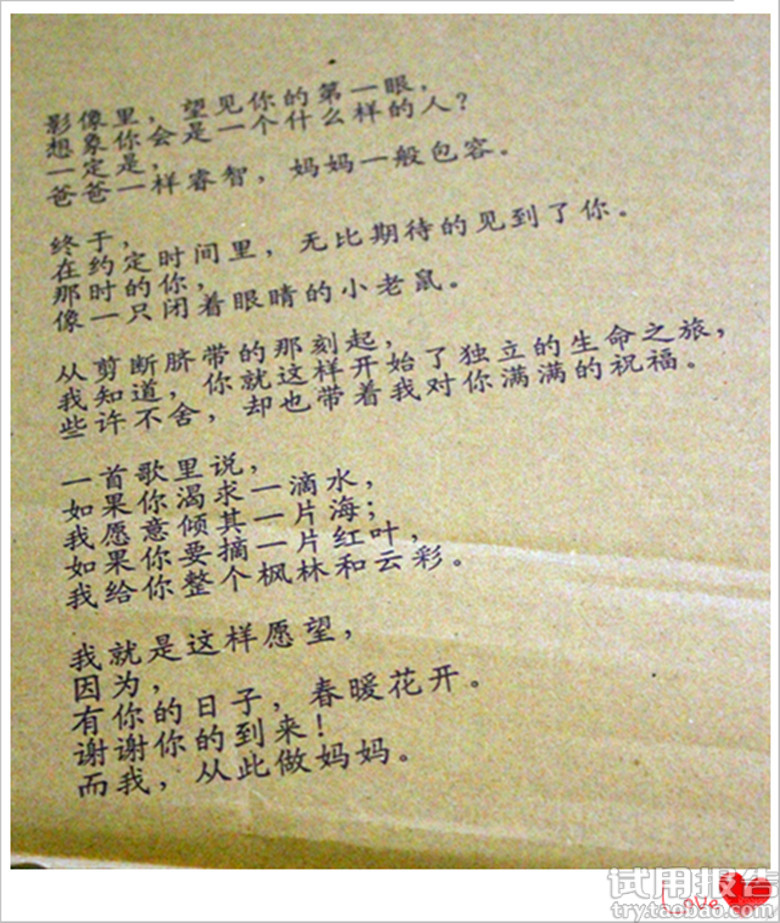 影像里，望见你的第一眼，
想象你会是一个什么样的人？
一定是，
爸爸一样睿智，妈妈一般包容。
终于，
在约定时间里，无比期待的见到了你。
那时的你，
像一只闭着眼睛的小老鼠。
从剪断脐带的那刻起，
我知道，你就这样开始了独立的生命之旅，
些许不舍，却也带着我对你满满的祝福。
一首歌里说，
如果你渴求一滴水，
我愿意倾其一片海；
如果你要摘一片红叶，
我给你整个枫林和云彩。
我就是这样愿望，
因为，
有你的日子，春暖花开。
谢谢你的到来！
而我，从此做妈妈。
试用报告
Love
try.taobao.com